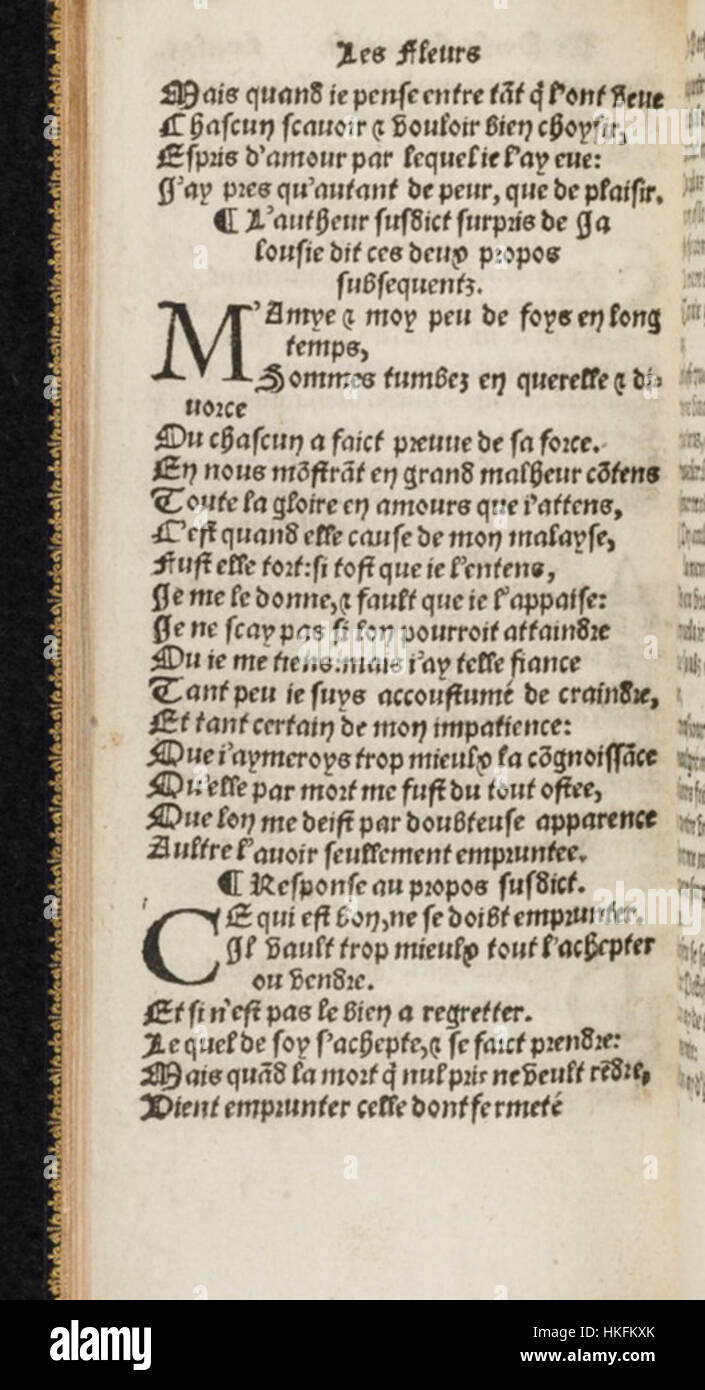 Les Fleurs
Mais quand ie pense entre tãt q̃ l'ont veue
Chascun scauoir & vouloir bien choysir,
Espris d'amour par lequel ie l'ay eue:
J'ay pres qu'autant de peur, que de plaisir.
¶ L'autheur susdict surpris de Ja
lousie dit ces deux propos
subsequentz.
M'Amye & moy peu de foys en long
temps,
Sommes tumbez en querelle & di-
uorce
Ou chascun a faict preuue de sa force.
En nous mõstrãt en grand malheur cõtens
Toute la gloire en amours que i'attens,
C'est quand elle cause de mon malayse,
Fust elle tort: si tost que ie l'entens,
Je me le donne, & fault que ie l'appaise:
Je ne scay pas si lon pourroit attaindre
Ou ie me tiens: mais i'ay telle fiance
Tant peu ie suys accoustumé de craindre,
Et tant certain de mon impatience:
Que i'aymeroys trop mieulx la cõgnoissãce
Qu'elle par mort me fust du tout ostee,
Que lon me deist par doubteuse apparence
Aultre l'auoir seullement empruntee.
¶ Response au propos susdict.
CE qui est bon, ne se doibt emprunter.
Jl vault trop mieulx tout l'achepter
ou vendre.
Et si n'est pas le bien a regretter.
Lequel de soy s'achepte, & se faict prendre:
Mais quãd la mort q̃ nul pris ne veult rẽdre,
Vient emprunter celle dont fermeté
alamy
Image ID: HKFKXK
www.alamy.com